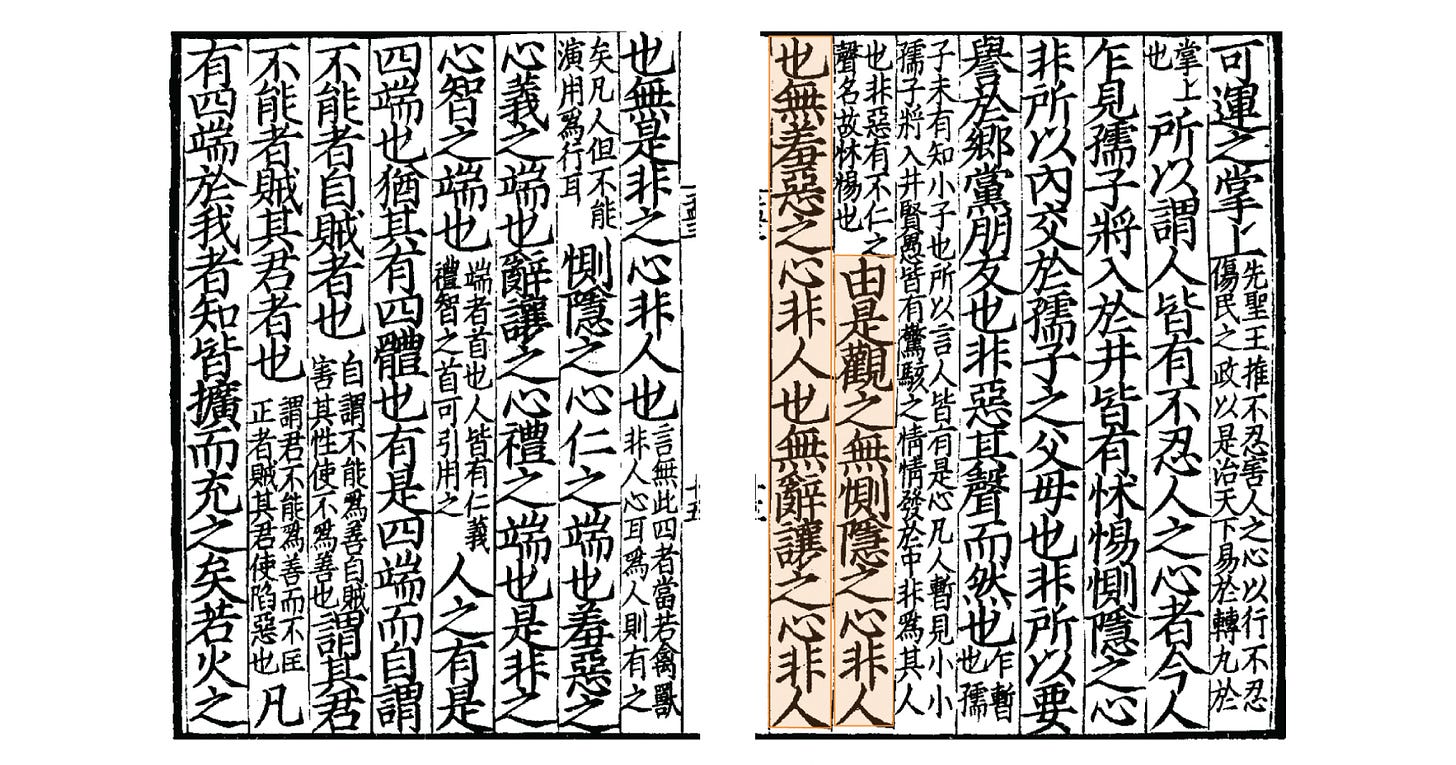 可運之掌上
先聖王推不忍害人之心以行不忍
傷民之政以是治天下易於轉丸於
掌上
也
所以謂人皆有不忍人之心者今人
乍見孺子將入於井皆有怵惕惻隱之心
非所以內交於孺子之父母也非所以要
譽於鄉黨朋友也非惡其聲而然也
乍暫
也孺
子未有知小子也所以言人皆有是心凡人暫見小小
孺子將入井賢愚皆有驚駭之情情發於中非爲其人
也非惡有不仁之
聲名故怵惕也
由是觀之無惻隱之心非人
也無羞惡之心非人也無辭讓之心非人
也無是非之心非人也
言無此四者當若禽獸
非人心耳爲人則有之
矣凡人但不能
演用爲行耳
惻隱之心仁之端也羞惡之
心義之端也辭讓之心禮之端也是非之
心智之端也
端者首也人皆有仁義
禮智之首可引用之
人之有是
四端也猶其有四體也有是四端而自謂
不能者自賊者也
自謂不能爲善自賊
害其性使不爲善也
謂其君
不能者賊其君者也
謂君不能爲善而不匡
正者賊其君使陷惡也
凡
有四端於我者知皆擴而充之矣若火之